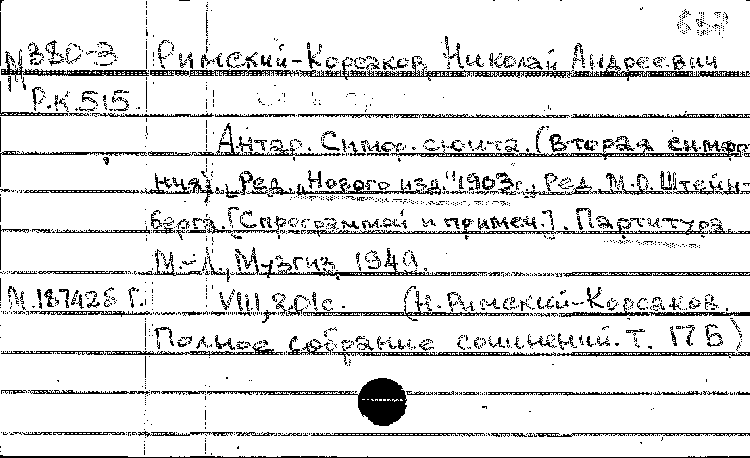 М 380-3 Римский-Корсаков Николай Андреевич
Р.К.515.
Антар. Симф. сюита. (Вторая симфо-
ния). Ред. "Нового изд." 1903г., Ред. М.О. Штейн-
берга. [С программой и примеч.]. Партитура.
М.-Л., Музгиз, 1949.
М.187428 Г. VIII, 201с. (Н. Римский-Корсаков.
Полное собрание сочинений. Т. 17Б)